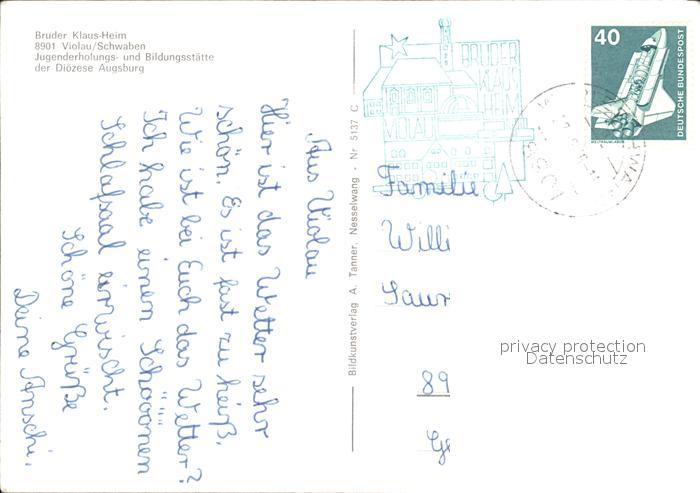 Bruder Klaus-Heim
8901 Violau/Schwaben
Jugenderholungs- und Bildungsstätte
der Diözese Augsburg
Aus Violau
Hier ist das Wetter sehr
schön. Es ist fast zu heiß.
Wie ist bei Euch das Wetter?
Ich habe einen Schööönen
Schlafsaal erwischt.
Schöne Grüße
Deine Anschi.
Bildkunstverlag A. Tanner, Nesselwang - Nr 5137 C
BRUDER
KLAUS
HEIM
VIOLAU
40
DEUTSCHE BUNDESPOST
WELTRAUMLABOR
Familie
Willi
Saur
89
privacy protection
Datenschutz